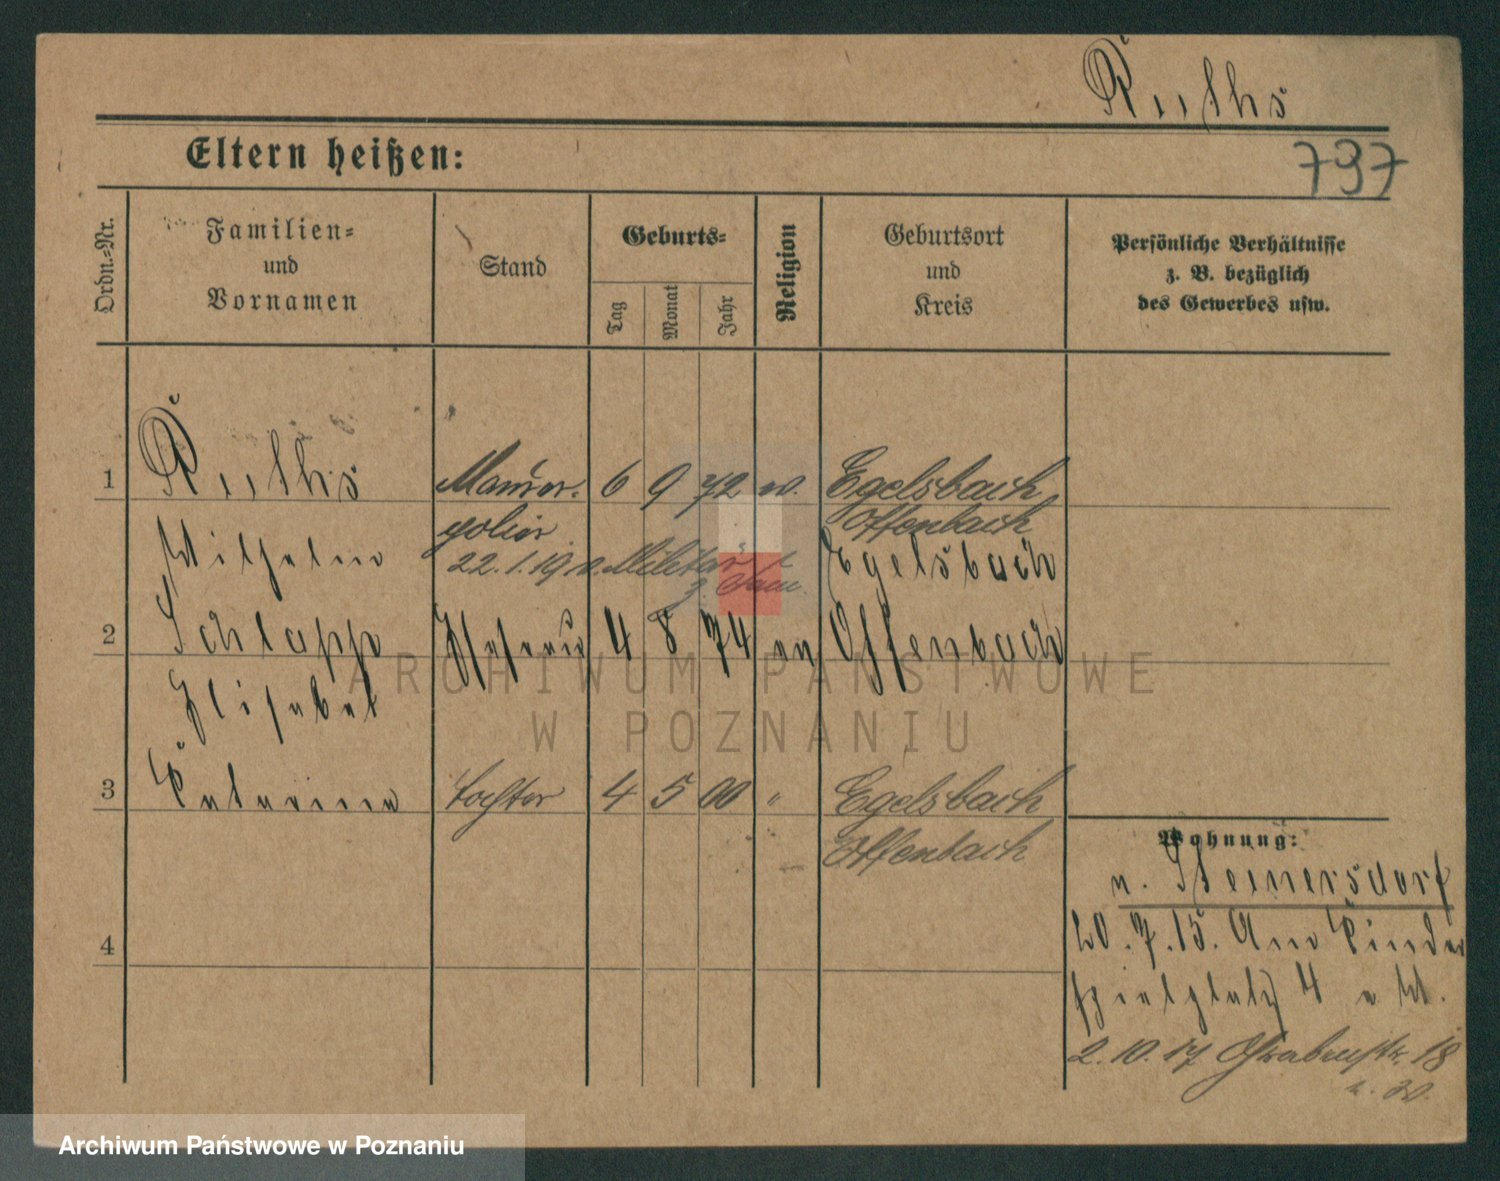 Ruths
Eltern heißen:
797
Ordn.-Nr.
Familien-
und
Vornamen
Stand
Geburts-
Tag
Monat
Jahr
Religion
Geburtsort
und
Kreis
Persönliche Verhältnisse
z. B. bezüglich
des Gewerbes usw.
1 Ruths Maurer- 6 9 72 ev. Egelsbach
polier Offenbach
Wilhelm 22.1.19 v. Militär Egelsbach
2 Schlapp Ehefrau 4 8 74 ev Offenbach
Elisabet
3 Katarina Tochter 4 5 00 " Egelsbach
Offenbach
4
Wohnung:
n. Steinersdorf
20.7.15. Am Kinder
spielplatz 4 e W.
2.10.17 Grabenstr. 18
e. W.
ARCHIWUM PAŃSTWOWE
W POZNANIU
Archiwum Państwowe w Poznaniu